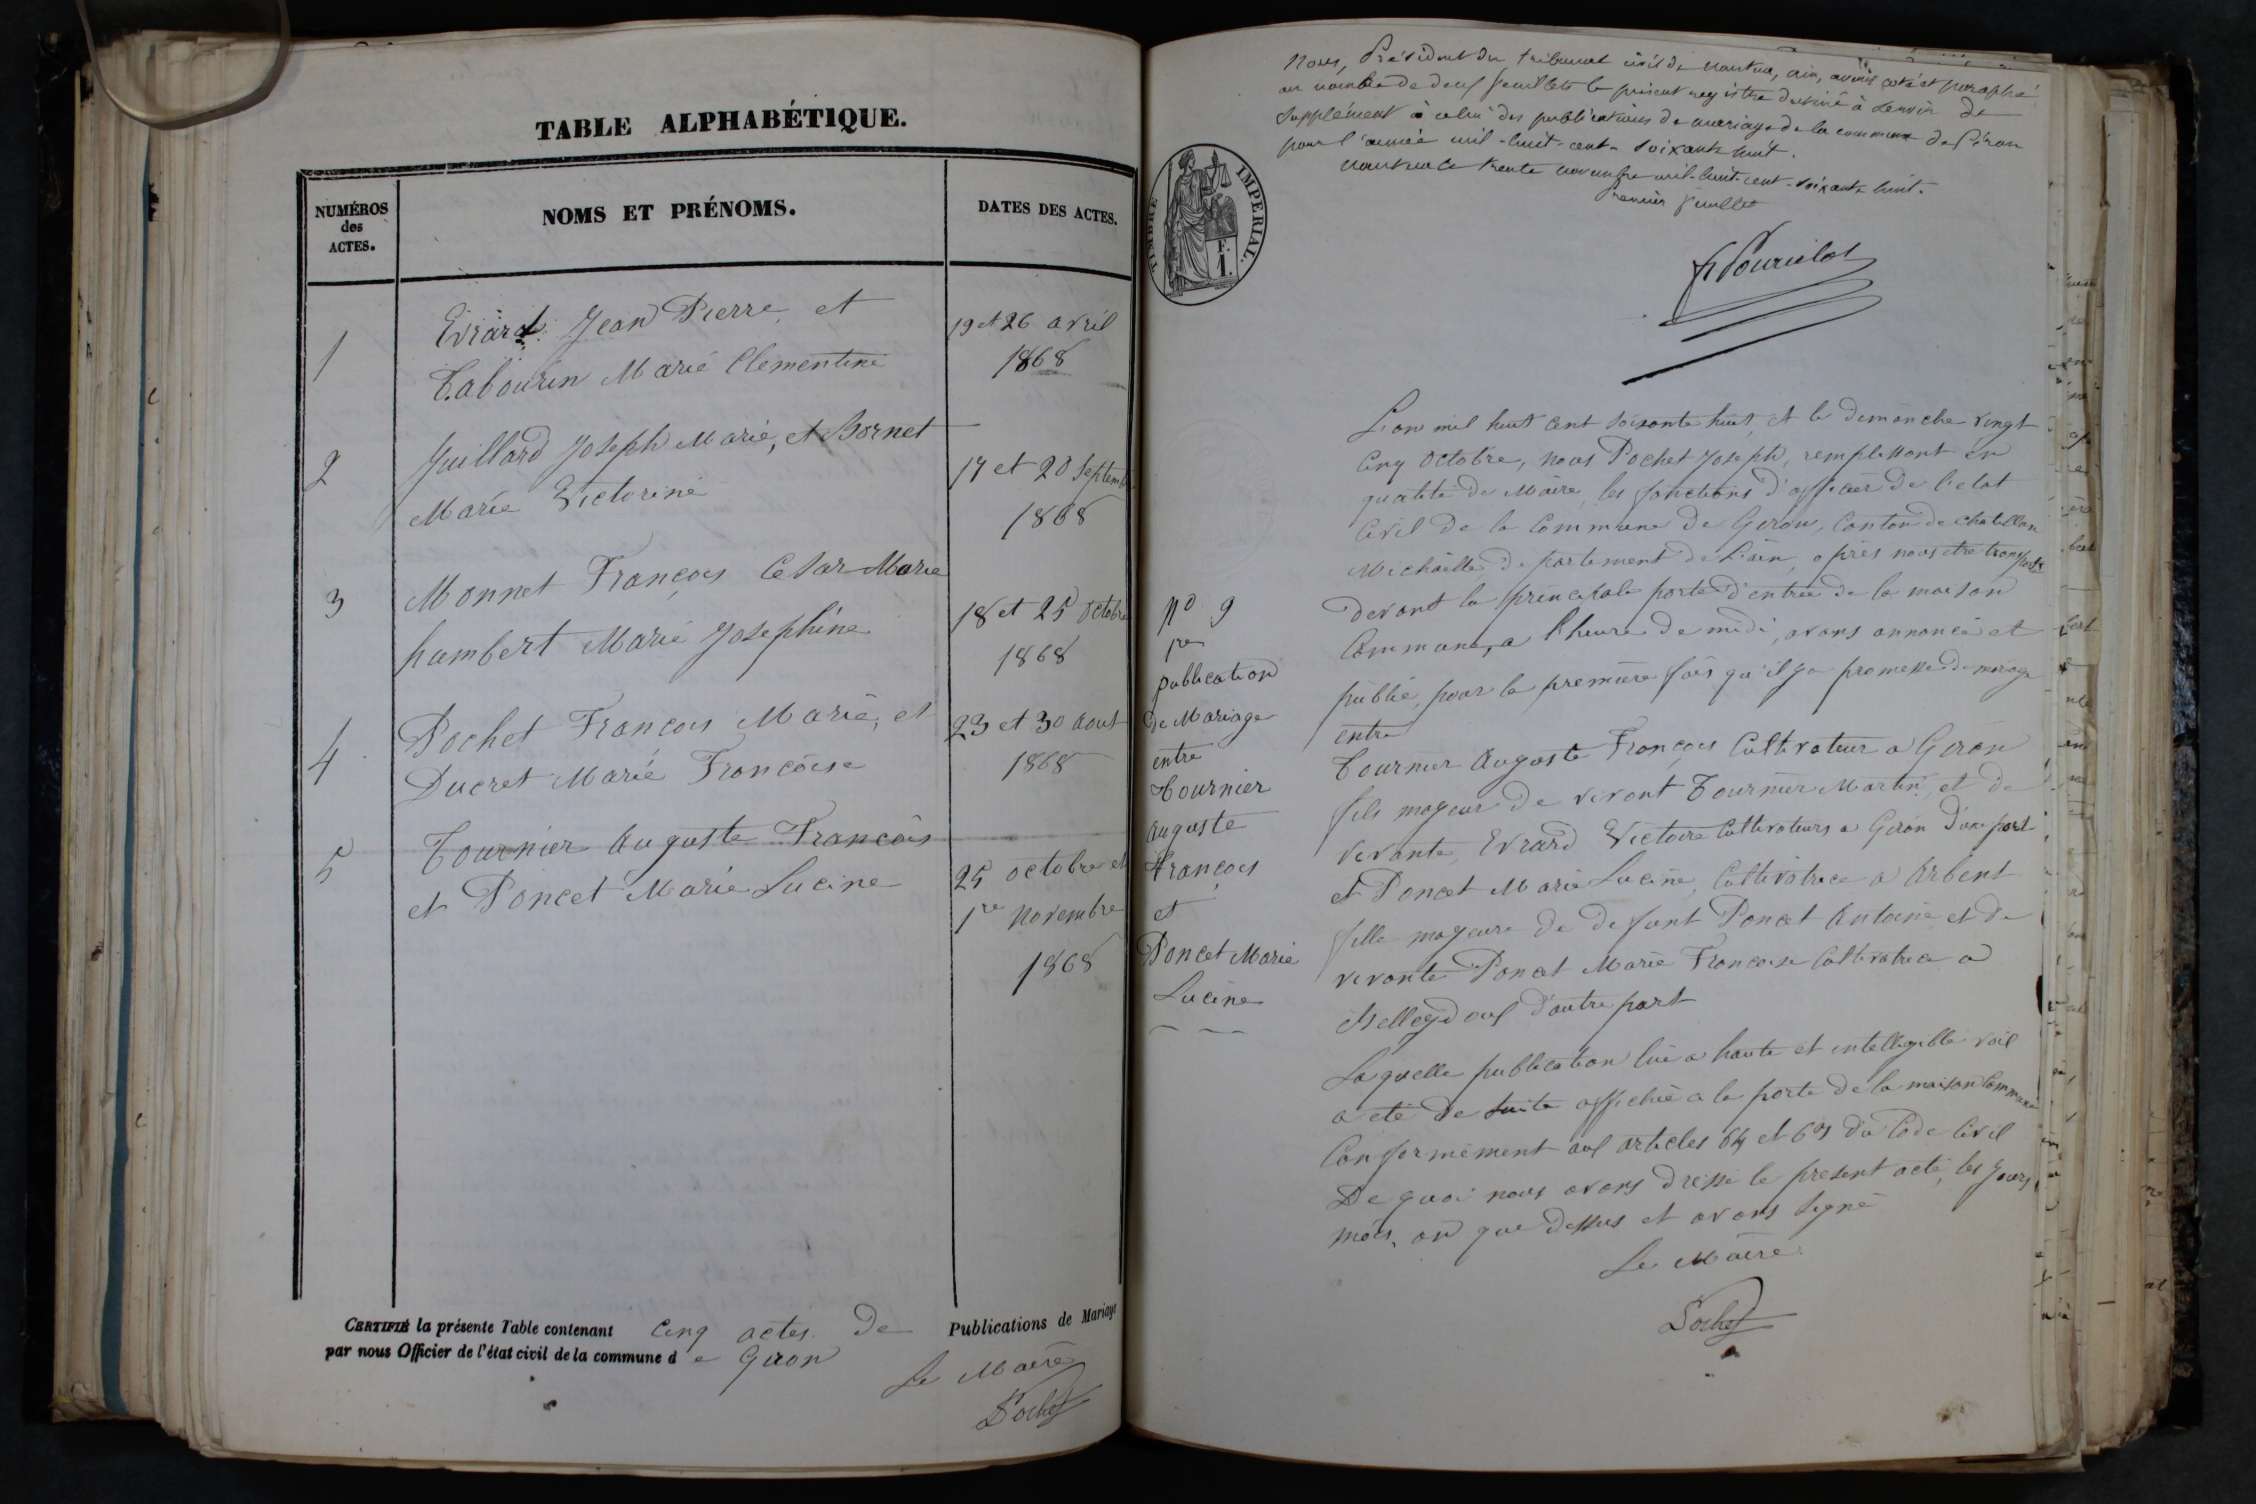 TABLE ALPHABÉTIQUE.
NUMÉROS
des
ACTES.
NOMS ET PRÉNOMS.
DATES DES ACTES.
1
Evrard Jean Pierre, et
Tabourin Marie Clementine
19 et 26 avril
1868
2
Juillard Joseph Marie, et Bornet
Marie Victorine
17 et 20 Septemb
1868
3
Monnet François Cesar Marie
humbert Marie Josephine
18 et 25 octobre
1868
4
Pochet François Marie, et
Ducret Marie Françoise
23 et 30 aout
1868
5
Tournier Auguste François
et Poncet Marie Lucine
25 octobre et
1re Novembre
1868
CERTIFIÉ la présente Table contenant cinq actes de Publications de Mariage
par nous Officier de l'état civil de la commune d e Giron
Le Maire
Pochet
Nous, Président du tribunal civil de nantua, ain, avons coté et paraphé
au nombre de deux feuillets le présent registre destiné à servir de
supplément à celui des publications de mariage de la commune de Giron
pour l'année mil-huit-cent-soixante huit.
nantua le trente novembre mil-huit-cent-soixante huit.
Premier feuillet
TIMBRE IMPERIAL.
F.
1.
L'an mil huit cent soixante huit, et le dimanche vingt
cinq octobre, nous Pochet Joseph, remplissant en
qualité de Maire, les fonctions d'officier de l'etat
civil de la Commune de Giron, Canton de chatillon
Michaille, département de l'ain, après nous etre transporté
devant la principale porte d'entrée de la maison
Commune, a l'heure de midi, avons annoncé et
publié, pour la première fois qu'il y a promesse de mariage
entre
Tournier Auguste François Cultivateur a Giron
fils majeur de vivant Tournier Martin, et de
vivante, Evrard Victoire Cultivateurs a Giron d'une part
et Poncet Marie Lucine, Cultivatrice a Arbent
fille majeure de defunt Poncet Antoine et de
vivante Poncet Marie Françoise Cultivatrice a
d'autre part
Laquelle publication lue a haute et intelligible voix
a été de suite affichée a la porte de la maison Commune
Conformément aux articles 64 et 63 du Code Civil
De quoi nous avons dressé le present acte, les jours,
mois, an que dessus et avons signé
Le Maire
Pochet
No 9
pre
publication
de Mariage
entre
Tournier
Auguste
François
et
Poncet Marie
Lucine